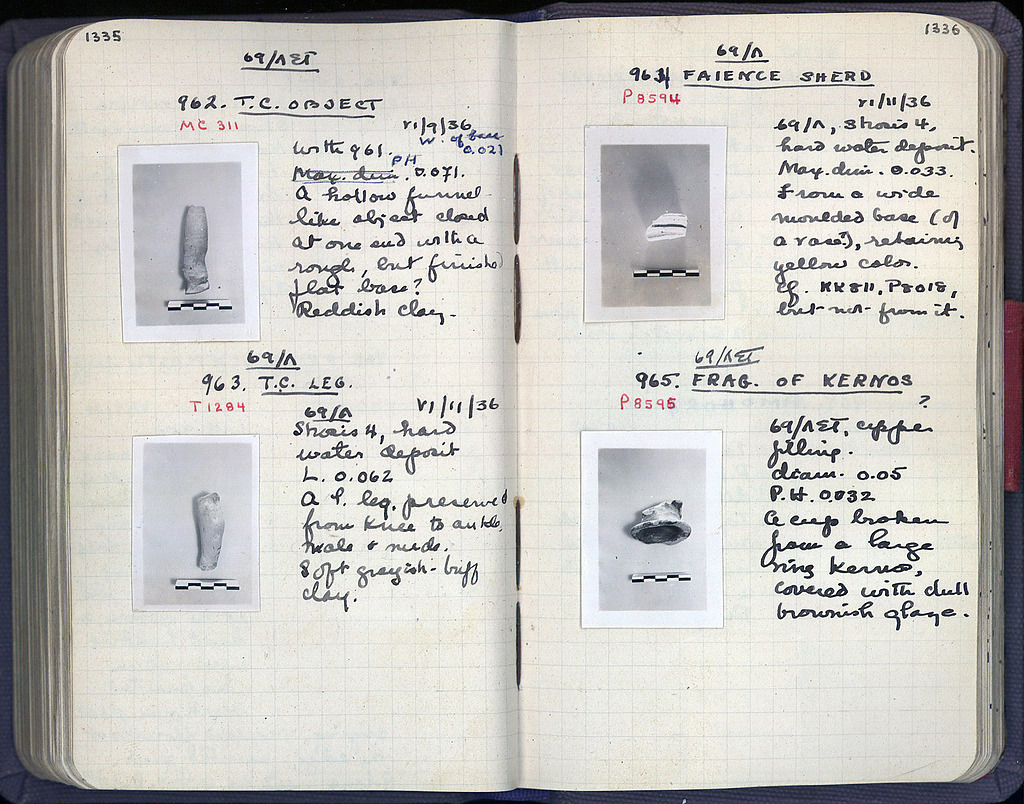 1335
69/ΛΣΤ
962. T.C. OBJECT
MC 311
VI/9/36
W. of base
0.021
with 961.
PH
Max. dim. 0.071.
A hollow funnel
like object closed
at one end with a
rough, but finished
flat base?
Reddish clay.
69/Λ
963. T.C. LEG.
T 1284
69/Λ
VI/11/36
Strosis 4, hard
water deposit
L. 0.062
A l. leg. preserved
from knee to ankle,
male & nude.
Soft greyish-buff
clay.
1336
69/Λ
964 FAIENCE SHERD
P 8594
VI/11/36
69/Λ, Strosis 4,
hard water deposit.
Max. dim. 0.033.
From a wide
moulded base (of
a vase?), retaining
yellow color.
cf. KK 811, P8018,
but not from it.
69/ΛΣΤ
965. FRAG. OF KERNOS
P 8595
?
69/ΛΣΤ, upper
filling.
diam. 0.05
P.H. 0.032
A cup broken
from a large
ring kernos,
covered with dull
brownish glaze.